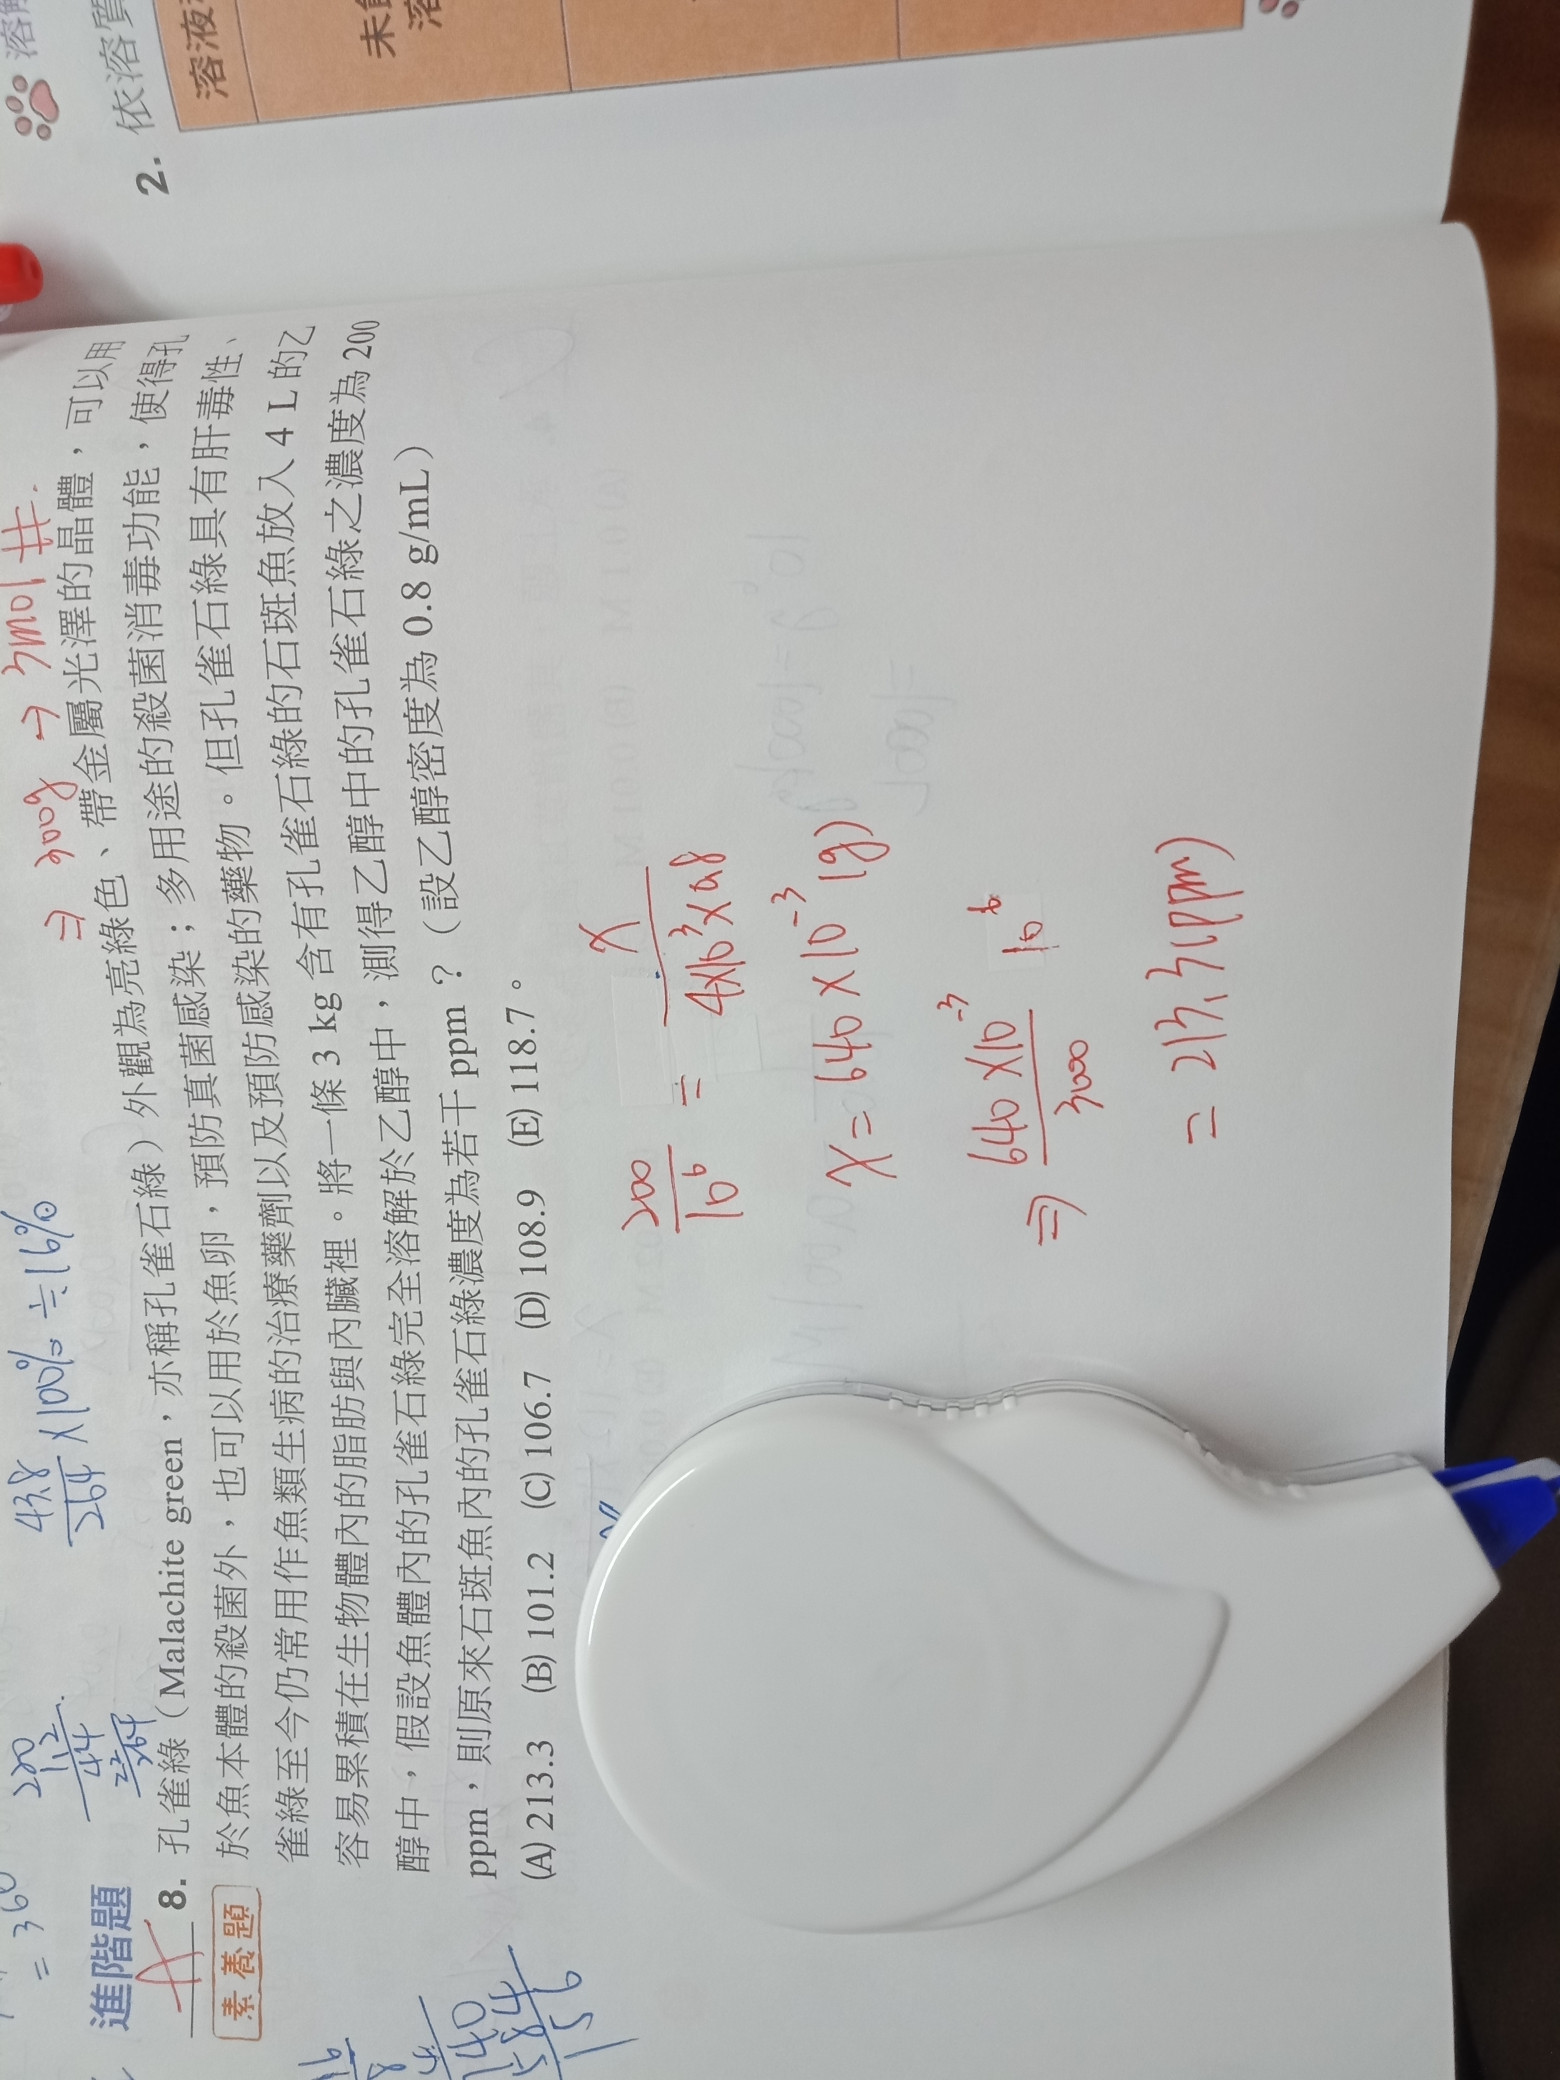 = 360
200
12
44
264
43.8
264
×100% ≒ 16%
⇒ 300g → 3mol #.
進階題
A 8. 孔雀綠（Malachite green，亦稱孔雀石綠）外觀為亮綠色、帶金屬光澤的晶體，可以用
素養題
於魚本體的殺菌外，也可以用於魚卵，預防真菌感染；多用途的殺菌消毒功能，使得孔
雀綠至今仍常用作魚類生病的治療藥劑以及預防感染的藥物。但孔雀石綠具有肝毒性、
容易累積在生物體內的脂肪與內臟裡。將一條 3 kg 含有孔雀石綠的石斑魚放入 4 L 的乙
醇中，假設魚體內的孔雀石綠完全溶解於乙醇中，測得乙醇中的孔雀石綠之濃度為 200
ppm，則原來石斑魚內的孔雀石綠濃度為若干 ppm？（設乙醇密度為 0.8 g/mL）
(A) 213.3 (B) 101.2 (C) 106.7 (D) 108.9 (E) 118.7。
200/10⁶ = x/4×10³×0.8
x = 640×10⁻³(g)
⇒ 640×10⁻³/3000 10⁶
= 213.3(ppm)
溶解
2. 依溶質
溶液
未飽
溶